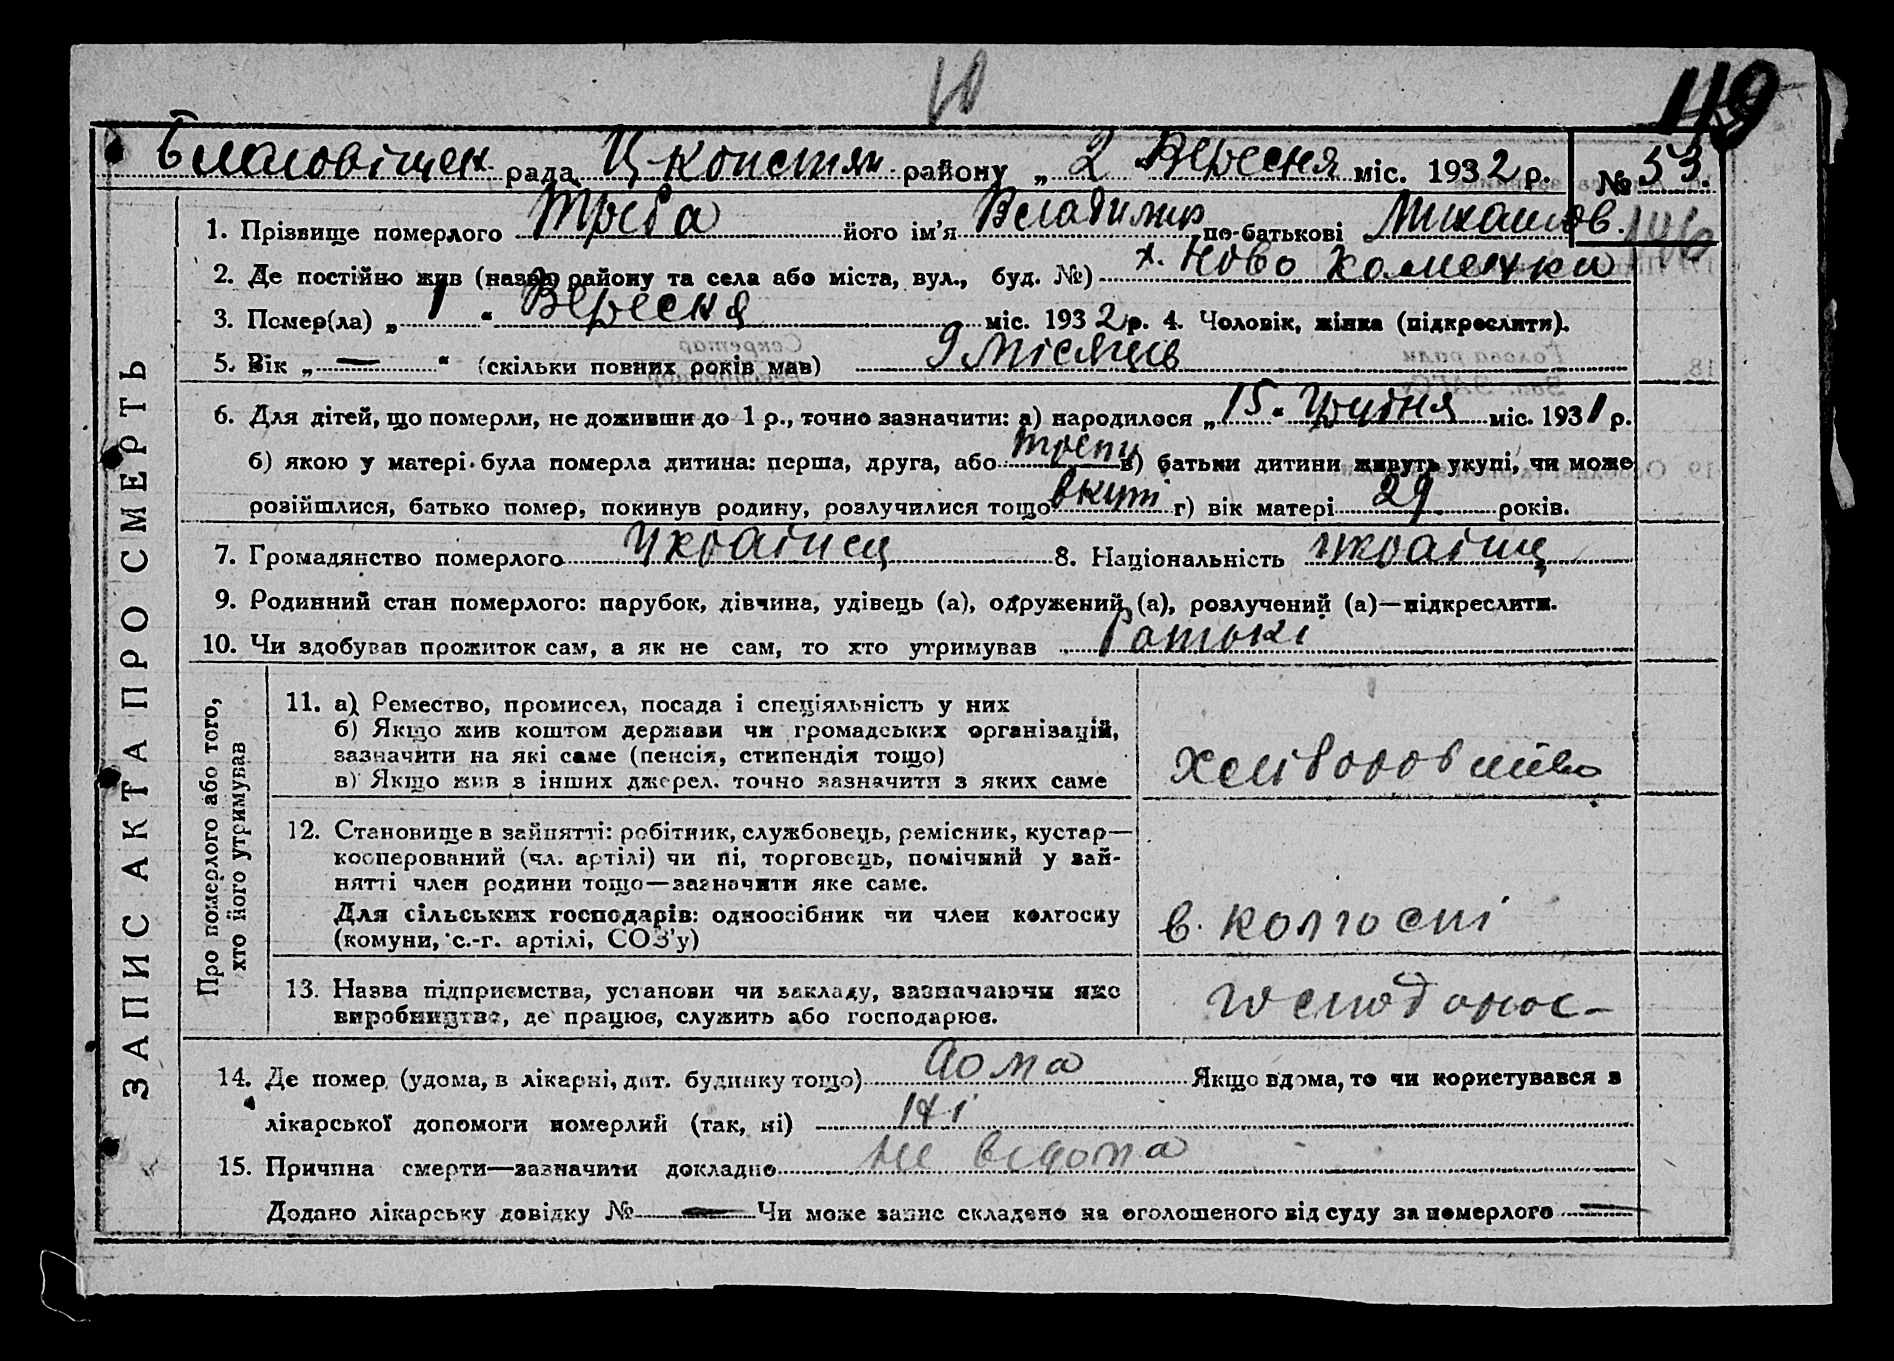 10
119
рада Ц Констян району „ 2 Вересня міс. 1932 р. № 53.
146
ЗАПИС АКТА ПРО СМЕРТЬ
1. Прізвище померлого Треба його ім'я Владимир по-батькові Михайлов.
2. Де постійно жив (назва району та села або міста, вул., буд. №) х. Ново
3. Помер(ла) „ 1 “ Вересня міс. 1932 р. 4. Чоловік, жінка (підкреслити).
5. Вік „ — “ (скільки повних років мав) 9 місяців
6. Для дітей, що померли, не доживши до 1 р., точно зазначити: а) народилося „ 15 “ Грудня міс. 1931 р.
б) якою у матері була померла дитина: перша, друга, або в) батьки дитини живуть укупі, чи може
розійшлися, батько помер, покинув родину, розлучилися тощо вкупі г) вік матері 29 років.
7. Громадянство померлого Українец 8. Національність україец
9. Родинний стан померлого: парубок, дівчина, удівець (а), одружений (а), розлучений (а)—підкреслити.
10. Чи здобував прожиток сам, а як не сам, то хто утримував Батькі
Про померлого або того,
хто його утримував
11. а) Ремество, промисел, посада і спеціяльність у них
б) Якщо жив коштом держави чи громадських організацій,
зазначити на які саме (пенсія, стипендія тощо)
в) Якщо жив з інших джерел, точно зазначити з яких саме
хліборобство
12. Становище в зайнятті: робітник, службовець, ремісник, кустар—
кооперований (чл. артілі) чи ні, торговець, помічний у зай-
нятті член родини тощо—зазначити яке саме.
Для сільських господарів: одноосібник чи член колгоспу
(комуни, с.-г. артілі, СОЗ'у)
в. колгоспі
13. Назва підприємства, установи чи закладу, зазначаючи яке
виробництво, де працює, служить або господарює.
14. Де помер (удома, в лікарні, дит. будинку тощо) дома Якщо вдома, то чи користувався з
лікарської допомоги померлий (так, ні) Ні
15. Причина смерти—зазначити докладно не відома
Додано лікарську довідку № — Чи може запис складено на оголошеного від суду за померлого —